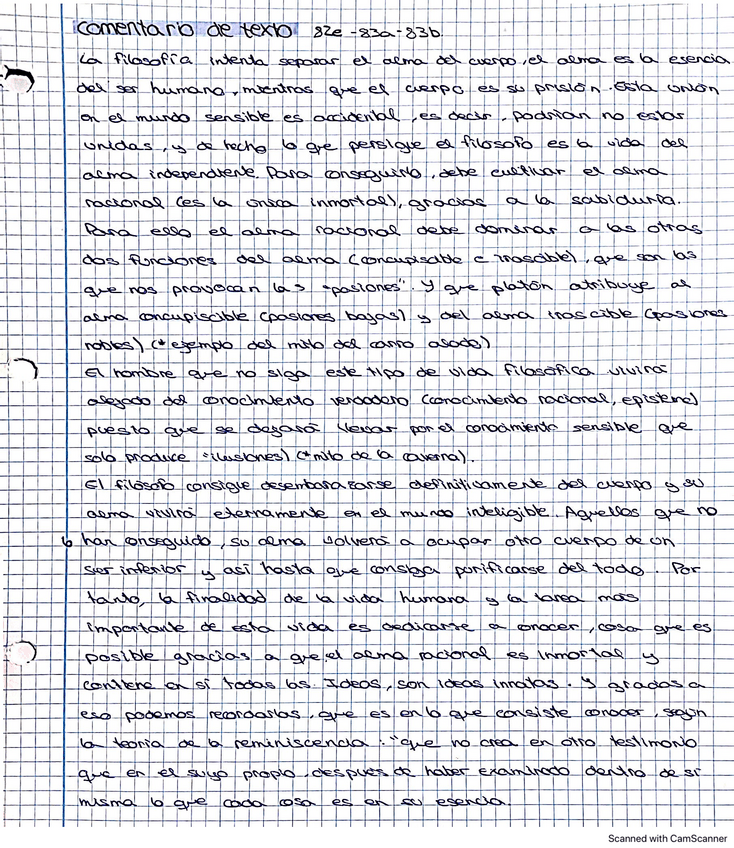 Comentario de texto 82e-83a-83b
La filosofía intenta separar el alma del cuerpo, el alma es la esencia
del ser humano, mientras que el cuerpo es su prisión. Esta unión
en el mundo sensible es accidental, es decir, podrían no estar
unidas, y de hecho lo que persigue el filosofo es la vida del
alma independiente. Para conseguirlo, debe cultivar el alma
racional (es la única inmortal), gracias a la sabiduría.
Para ello el alma racional debe dominar a las otras
dos funciones del alma (concupiscible e irascible), que son las
que nos provocan las "pasiones". Y que platón atribuye al
alma concupiscible (pasiones bajas) y del alma irascible (pasiones
nobles) (* ejemplo del mito del carro alado)
El hombre que no siga este tipo de vida filosofica vivirá
alejado del conocimiento verdadero (conocimiento racional, episteme)
puesto que se dejará llevar por el conocimiento sensible que
solo produce "ilusiones) (*mito de la caverna).
El filósofo consigue desembarazarse definitivamente del cuerpo y su
alma vivirá eternamente en el mundo inteligible. Aquellos que no
lo han conseguido, su alma volverá a ocupar otro cuerpo de un
ser inferior y así hasta que consiga purificarse del todo. Por
tanto, la finalidad de la vida humana y la tarea más
importante de esta vida es dedicarse a conocer, cosa que es
posible gracias a que el alma racional es inmortal y
contiene en sí todas las Ideas, son ideas innatas. Y gracias a
eso podemos recordarlas, que es en lo que consiste conocer, según
la teoría de la reminiscencia: "que no crea en otro testimonio
que en el suyo propio, después de haber examinado dentro de sí
misma lo que cada cosa es en su esencia.
Scanned with CamScanner